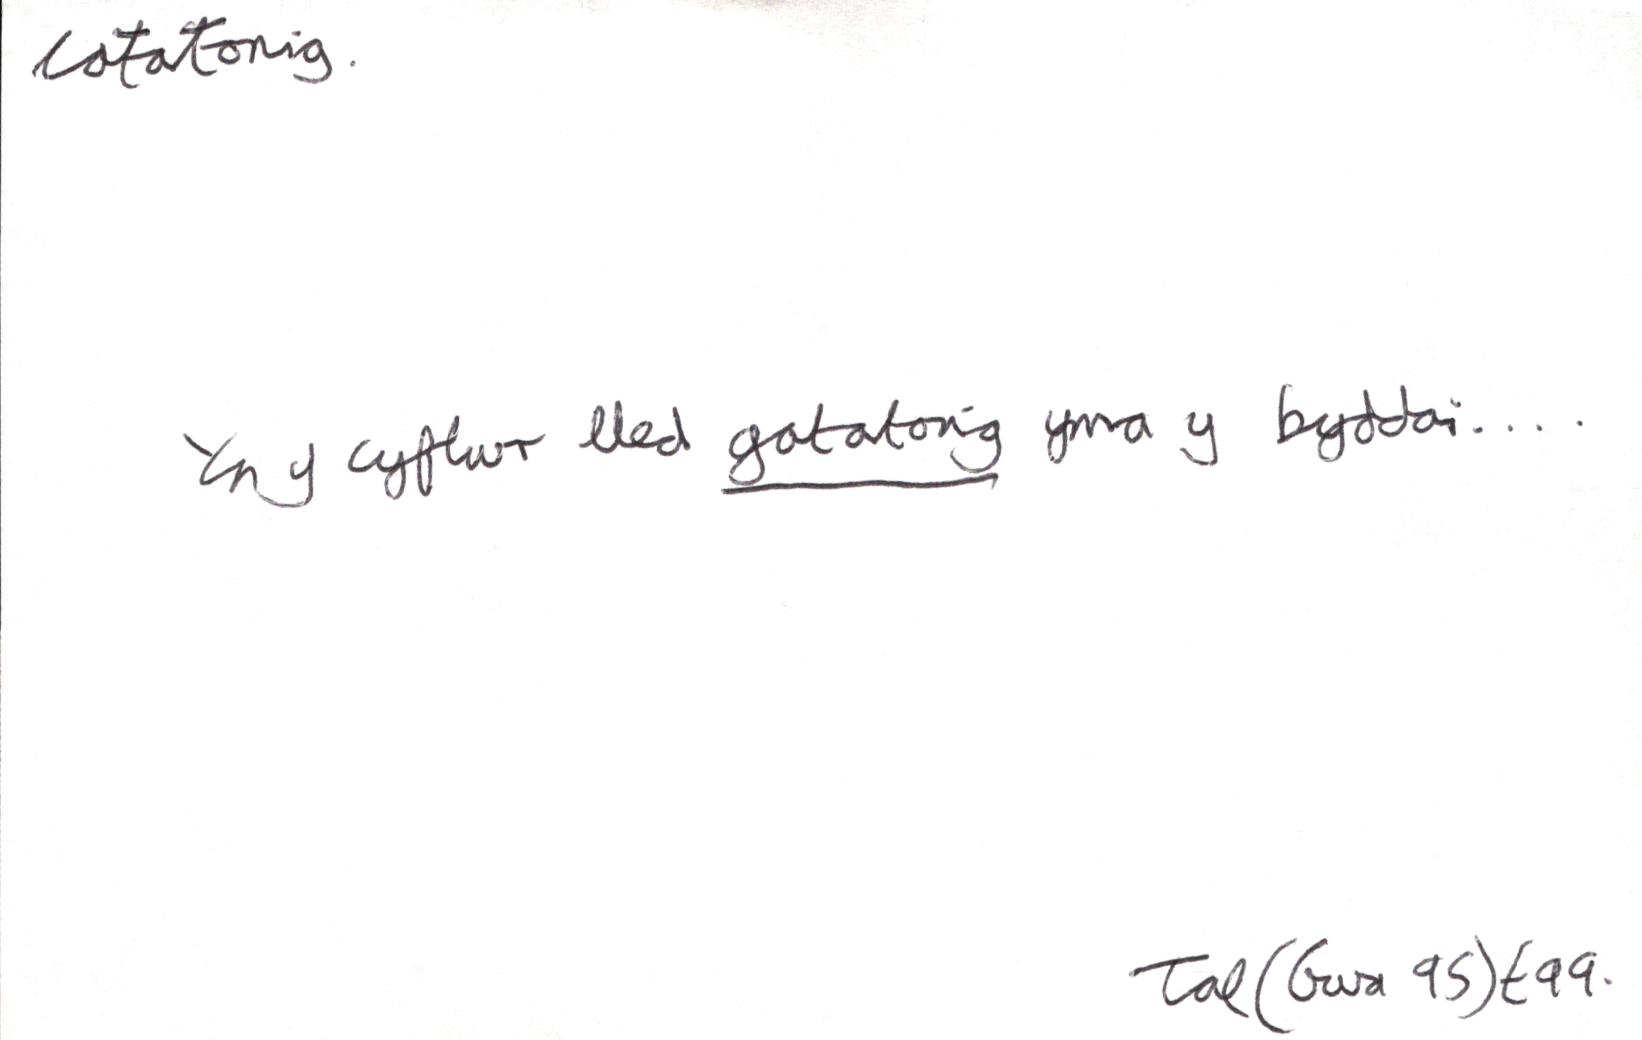 catatonig.
Yn y cyflwr lled gatatonig yma y byddai.....
Tal (Gwa 95) t 99.